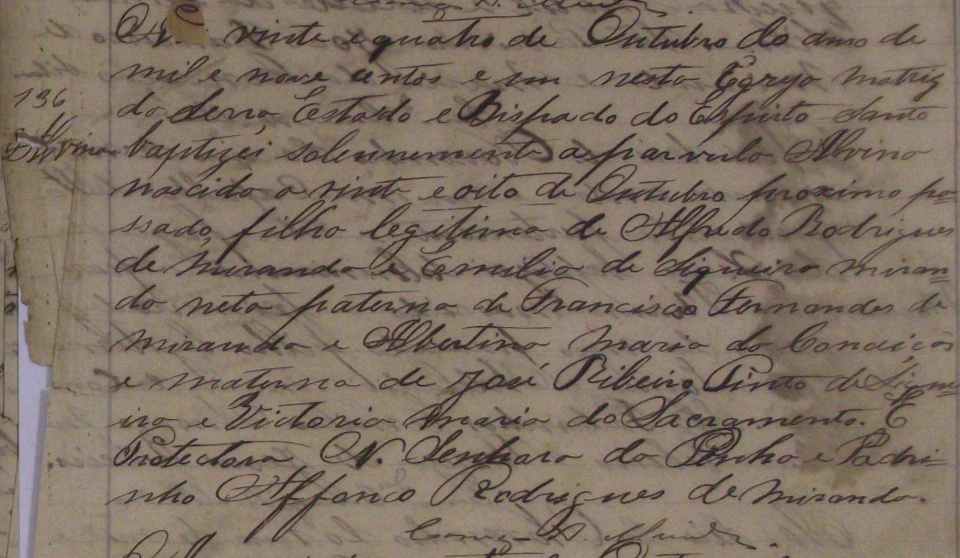 A vinte e quatro de Outubro do anno de
mil e nove centos e um nesta Egreja Matriz
da Serra, Estado e Bispado do Espirito Santo
136
Alvina
baptizei solennemente a parvula Alvina
nascida a vinte e oito de Outubro proximo pa-
ssado, filha legitima de Alfredo Rodrigues
de Miranda e Emilia de Siqueira Miran-
da neta paterna de Francisco Fernandes de
Miranda e Albertina Maria da Conceição
e materna de José Ribeiro Pinto de Siquei-
ra e Victoria Maria do Sacramento. E
Protectora N. Senhora da Penha e Padri-
nho Affonco Rodrigues de Miranda.